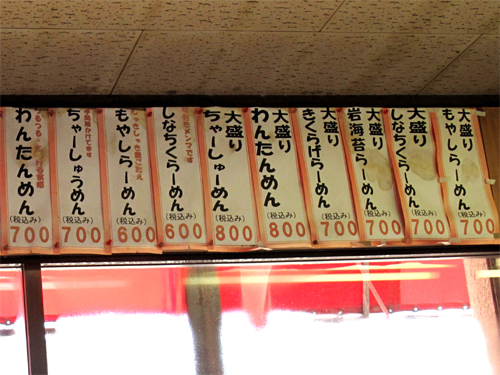 わんたんめん
(税込み)
700
ちゃーしゅうめん
(税込み)
700
もやしらーめん
(税込み)
600
メンマです
しなちくらーめん
(税込み)
600
大盛り
ちゃーしゅーめん
(税込み)
800
大盛り
わんたんめん
(税込み)
800
大盛り
きくらげらーめん
(税込み)
700
大盛り
岩海苔らーめん
(税込み)
700
大盛り
しなちくらーめん
(税込み)
700
大盛り
もやしらーめん
(税込み)
700